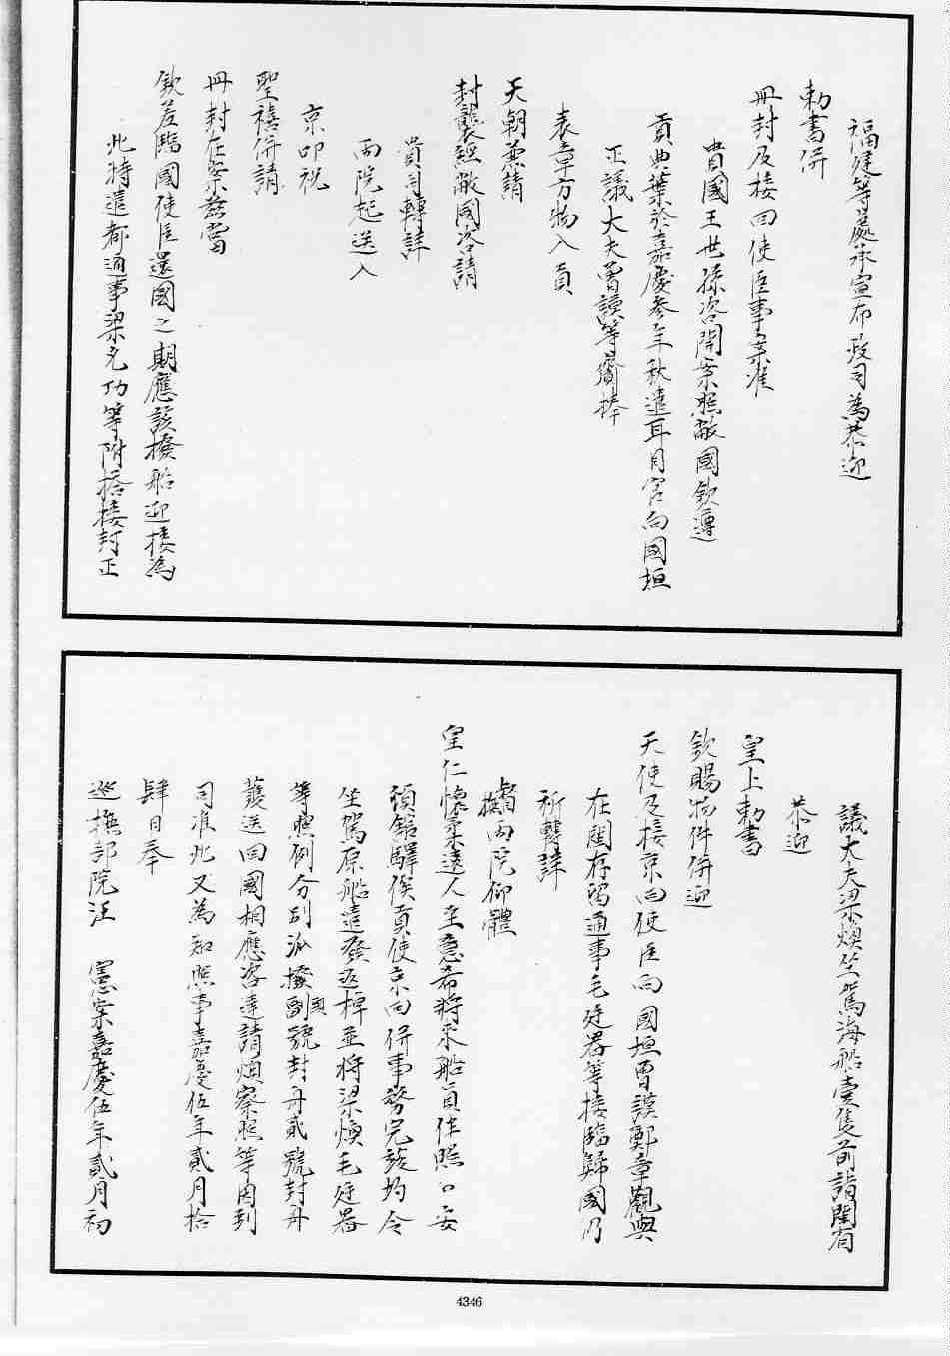 福建等處承宣布政司為恭迎
勅書併
冊封及接回使臣事案准
貴國王世孫咨開案照敝國欽遵
貢典業於嘉慶參年秋遣耳目官向國垣
正議大夫曾謨等齎捧
表章方物入貢
天朝兼請
封襲經敝國咨請
貴司轉詳
兩院起送入
京叩祝
聖禧併請
冊封在案茲當
欽差臨國使臣還國之期應該撥船迎接為
此特遣都通事梁允功等附搭接封正
議大夫梁煥坐駕海船壹隻前詣閩省
恭迎
皇上勅書
欽賜物件併迎
天使及接京回使臣向國垣曾謨鄭章觀與
在閩存留通事毛廷器等接臨歸國乃
祈轉詳
督撫兩院仰體
皇仁懷柔遠人至意希將來船員伴照口安
頓館驛俟貢使京回併事務完竣均令
坐駕原船遣發返棹並將梁煥毛廷器
等照例分別派撥頭副號封舟貳號封舟
護送回國相應咨達請煩察照等因到
司准此又為知照事嘉慶伍年貳月拾
肆日奉
巡撫部院汪　憲案嘉慶伍年貳月初
4346